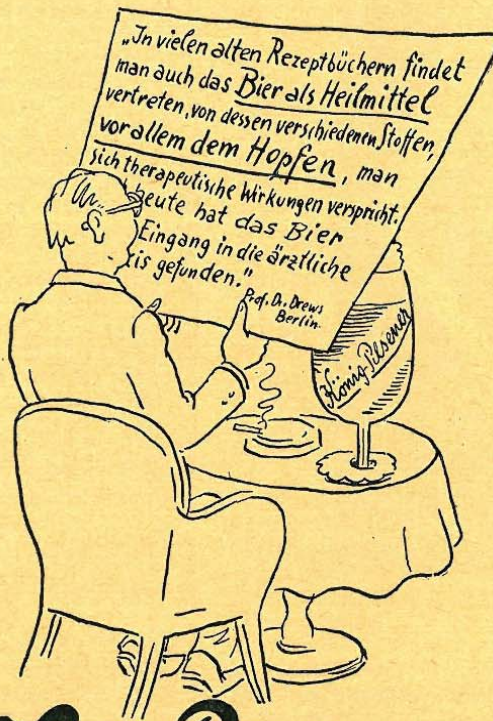 „In vielen alten Rezeptbüchern findet
man auch das Bier als Heilmittel
vertreten, von dessen verschiedenen Stoffen,
vor allem dem Hopfen, man
sich therapeutische Wirkungen verspricht.
heute hat das Bier
Eingang in die ärztliche
is gefunden."
Prof. Dr. Drews
Berlin.
König Pilsener